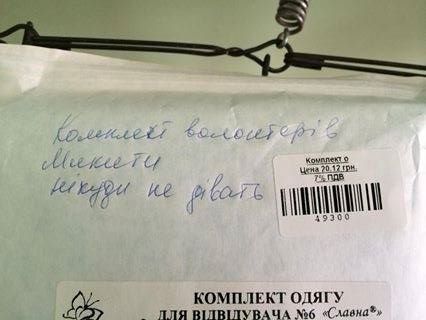 Комплект волонтерів
Микити
нікуди не дівать
Комплект о
Цена 20.12 грн.
7% ПДВ
49300
КОМПЛЕКТ ОДЯГУ
ДЛЯ ВІДВІДУВАЧА №6 «Славна®»